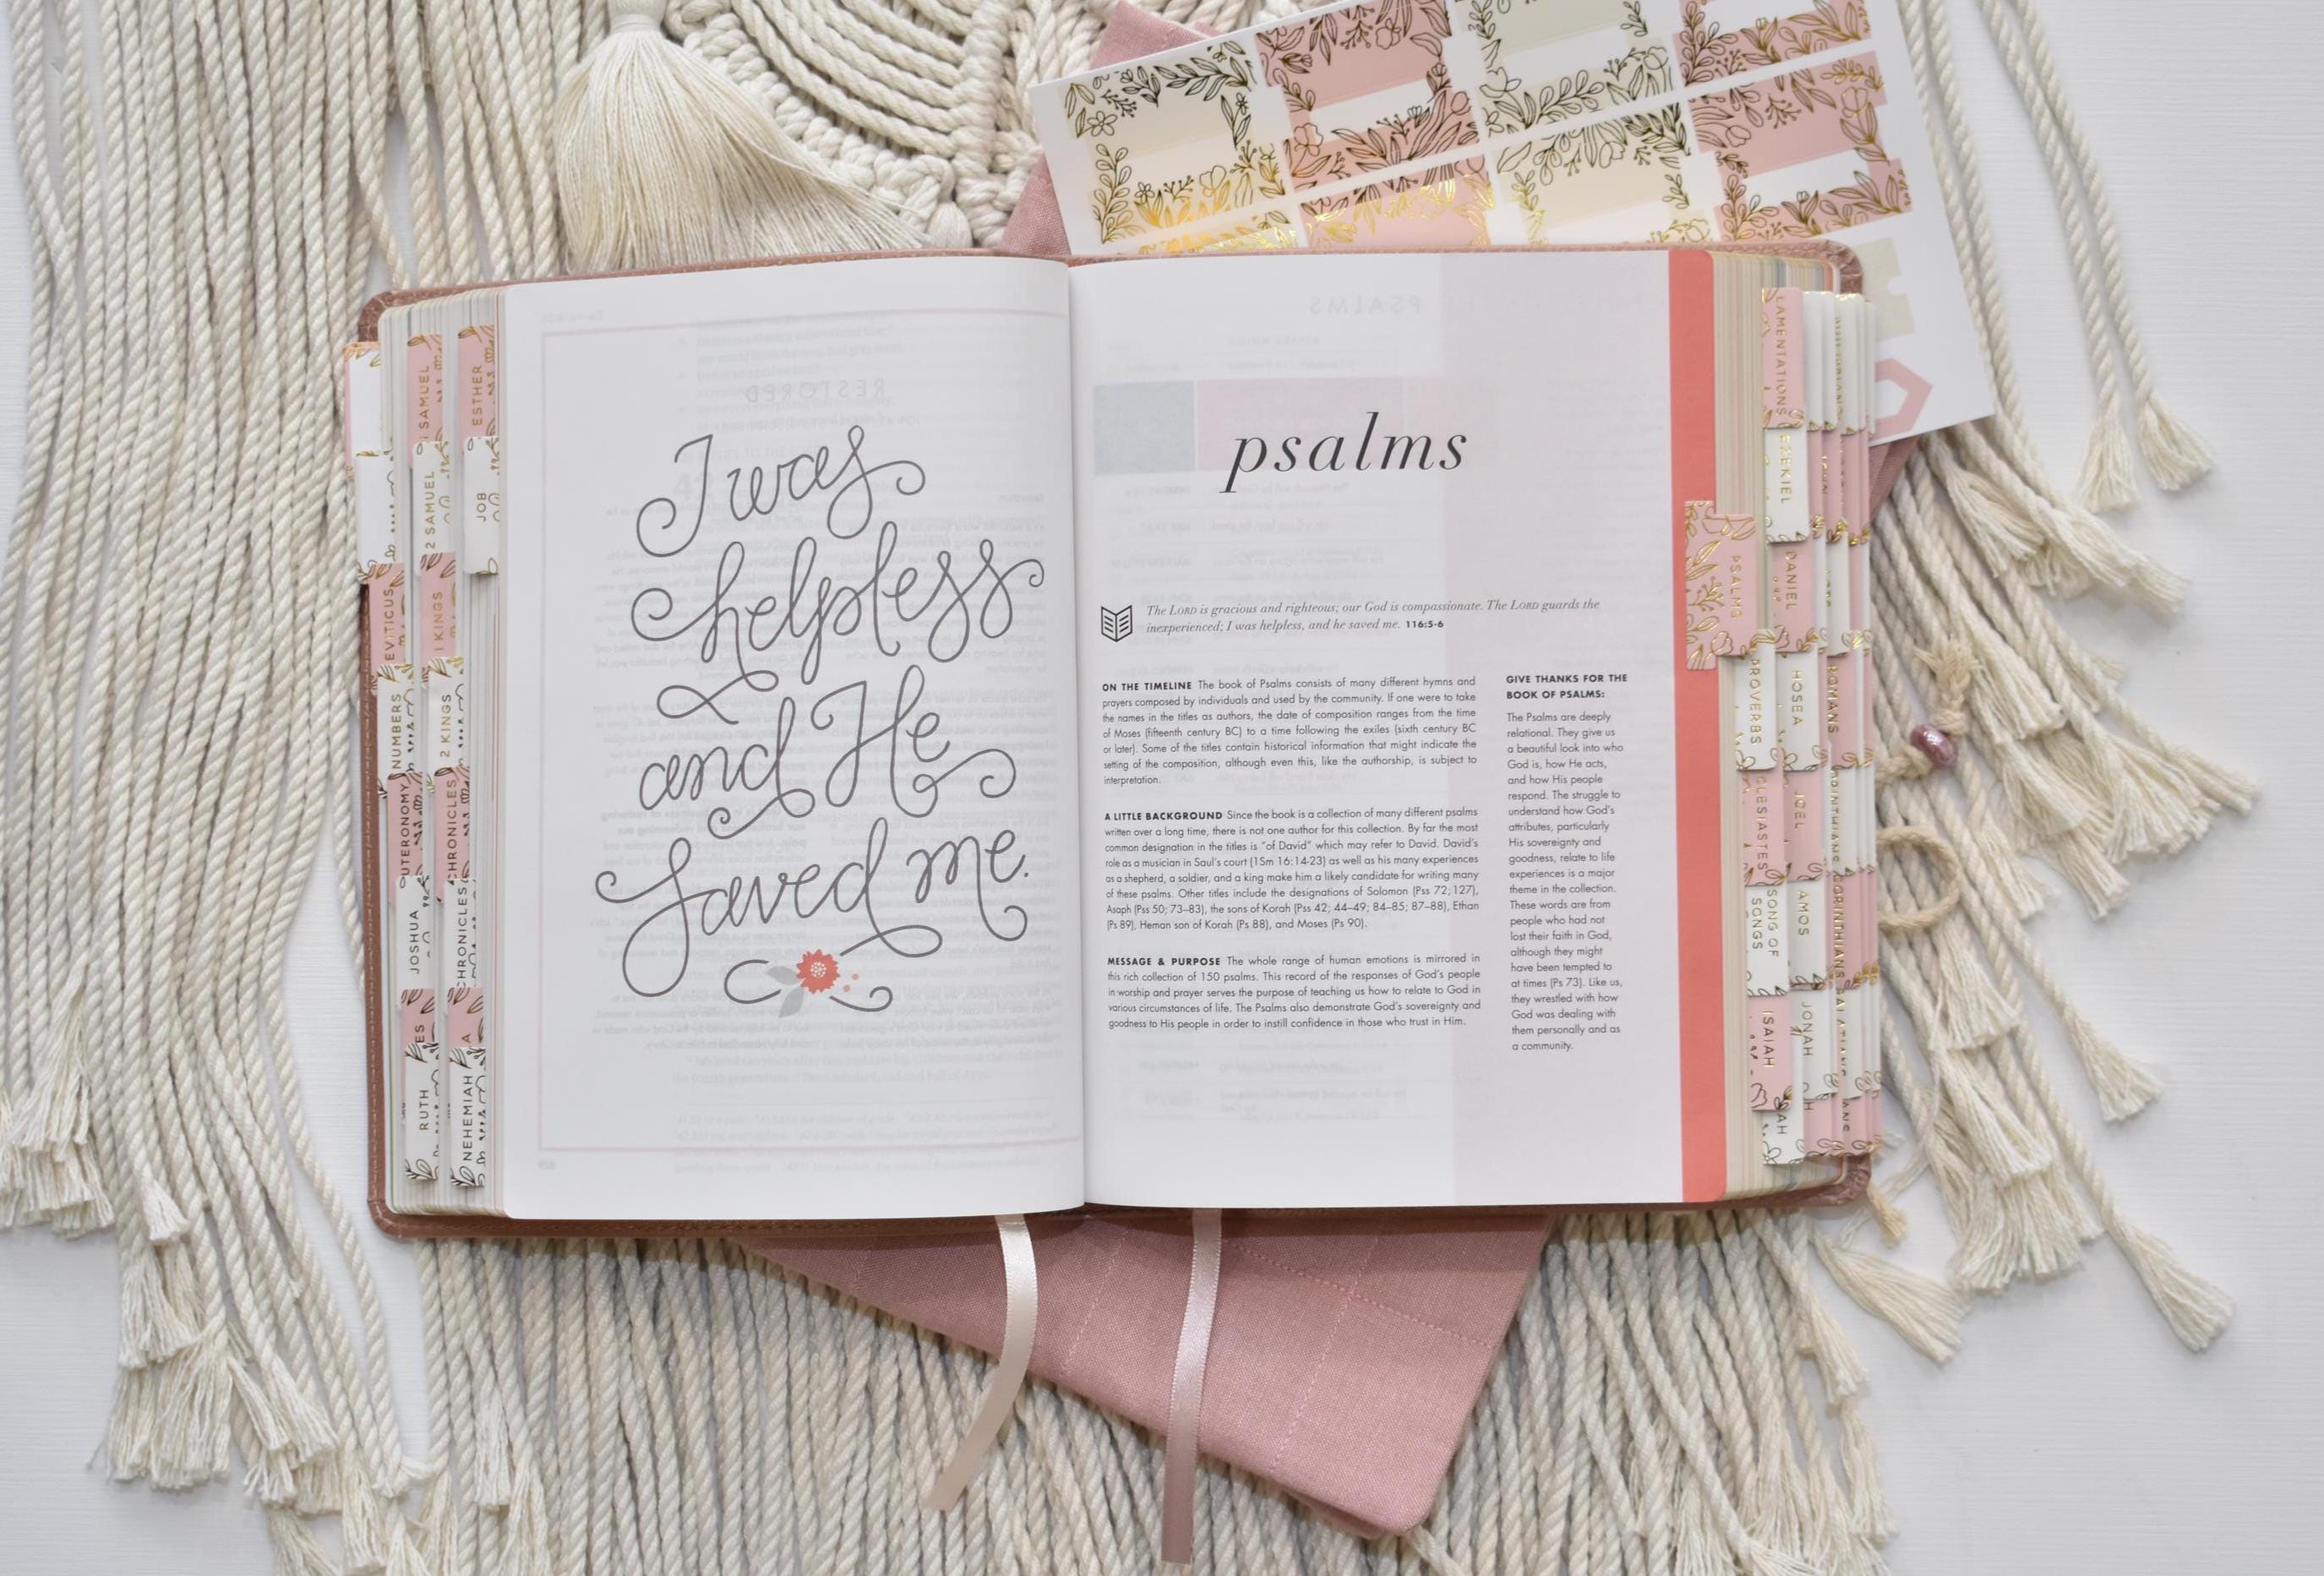 I was
helpless
and He
saved me.
psalms
The LORD is gracious and righteous; our God is compassionate. The LORD guards the
inexperienced; I was helpless, and he saved me. 116:5-6
ON THE TIMELINE The book of Psalms consists of many different hymns and
prayers composed by individuals and used by the community. If one were to take
the names in the titles as authors, the date of composition ranges from the time
of Moses (fifteenth century BC) to a time following the exiles (sixth century BC
or later). Some of the titles contain historical information that might indicate the
setting of the composition, although even this, like the authorship, is subject to
interpretation.
A LITTLE BACKGROUND Since the book is a collection of many different psalms
written over a long time, there is not one author for this collection. By far the most
common designation in the titles is "of David" which may refer to David. David's
role as a musician in Saul's court (1Sm 16:14-23) as well as his many experiences
as a shepherd, a soldier, and a king make him a likely candidate for writing many
of these psalms. Other titles include the designations of Solomon (Pss 72; 127),
Asaph (Pss 50; 73–83), the sons of Korah (Pss 42; 44–49; 84–85; 87–88), Ethan
(Ps 89), Heman son of Korah (Ps 88), and Moses (Ps 90).
MESSAGE & PURPOSE The whole range of human emotions is mirrored in
this rich collection of 150 psalms. This record of the responses of God's people
in worship and prayer serves the purpose of teaching us how to relate to God in
various circumstances of life. The Psalms also demonstrate God's sovereignty and
goodness to His people in order to instill confidence in those who trust in Him.
GIVE THANKS FOR THE
BOOK OF PSALMS:
The Psalms are deeply
relational. They give us
a beautiful look into who
God is, how He acts,
and how His people
respond. The struggle to
understand how God's
attributes, particularly
His sovereignty and
goodness, relate to life
experiences is a major
theme in the collection.
These words are from
people who had not
lost their faith in God,
although they might
have been tempted to
at times (Ps 73). Like us,
they wrestled with how
God was dealing with
them personally and as
a community.
EVITICUS
NUMBERS
UTERONOMY
JOSHUA
ES
RUTH
1 SAMUEL
2 SAMUEL
1 KINGS
2 KINGS
CHRONICLES
CHRONICLES
A
NEHEMIAH
ESTHER
JOB
PSALMS
PROVERBS
CLESIASTES
SONG OF
SONGS
ISAIAH
AH
LAMENTATIONS
EZEKIEL
DANIEL
HOSEA
JOEL
AMOS
JONAH
ROMANS